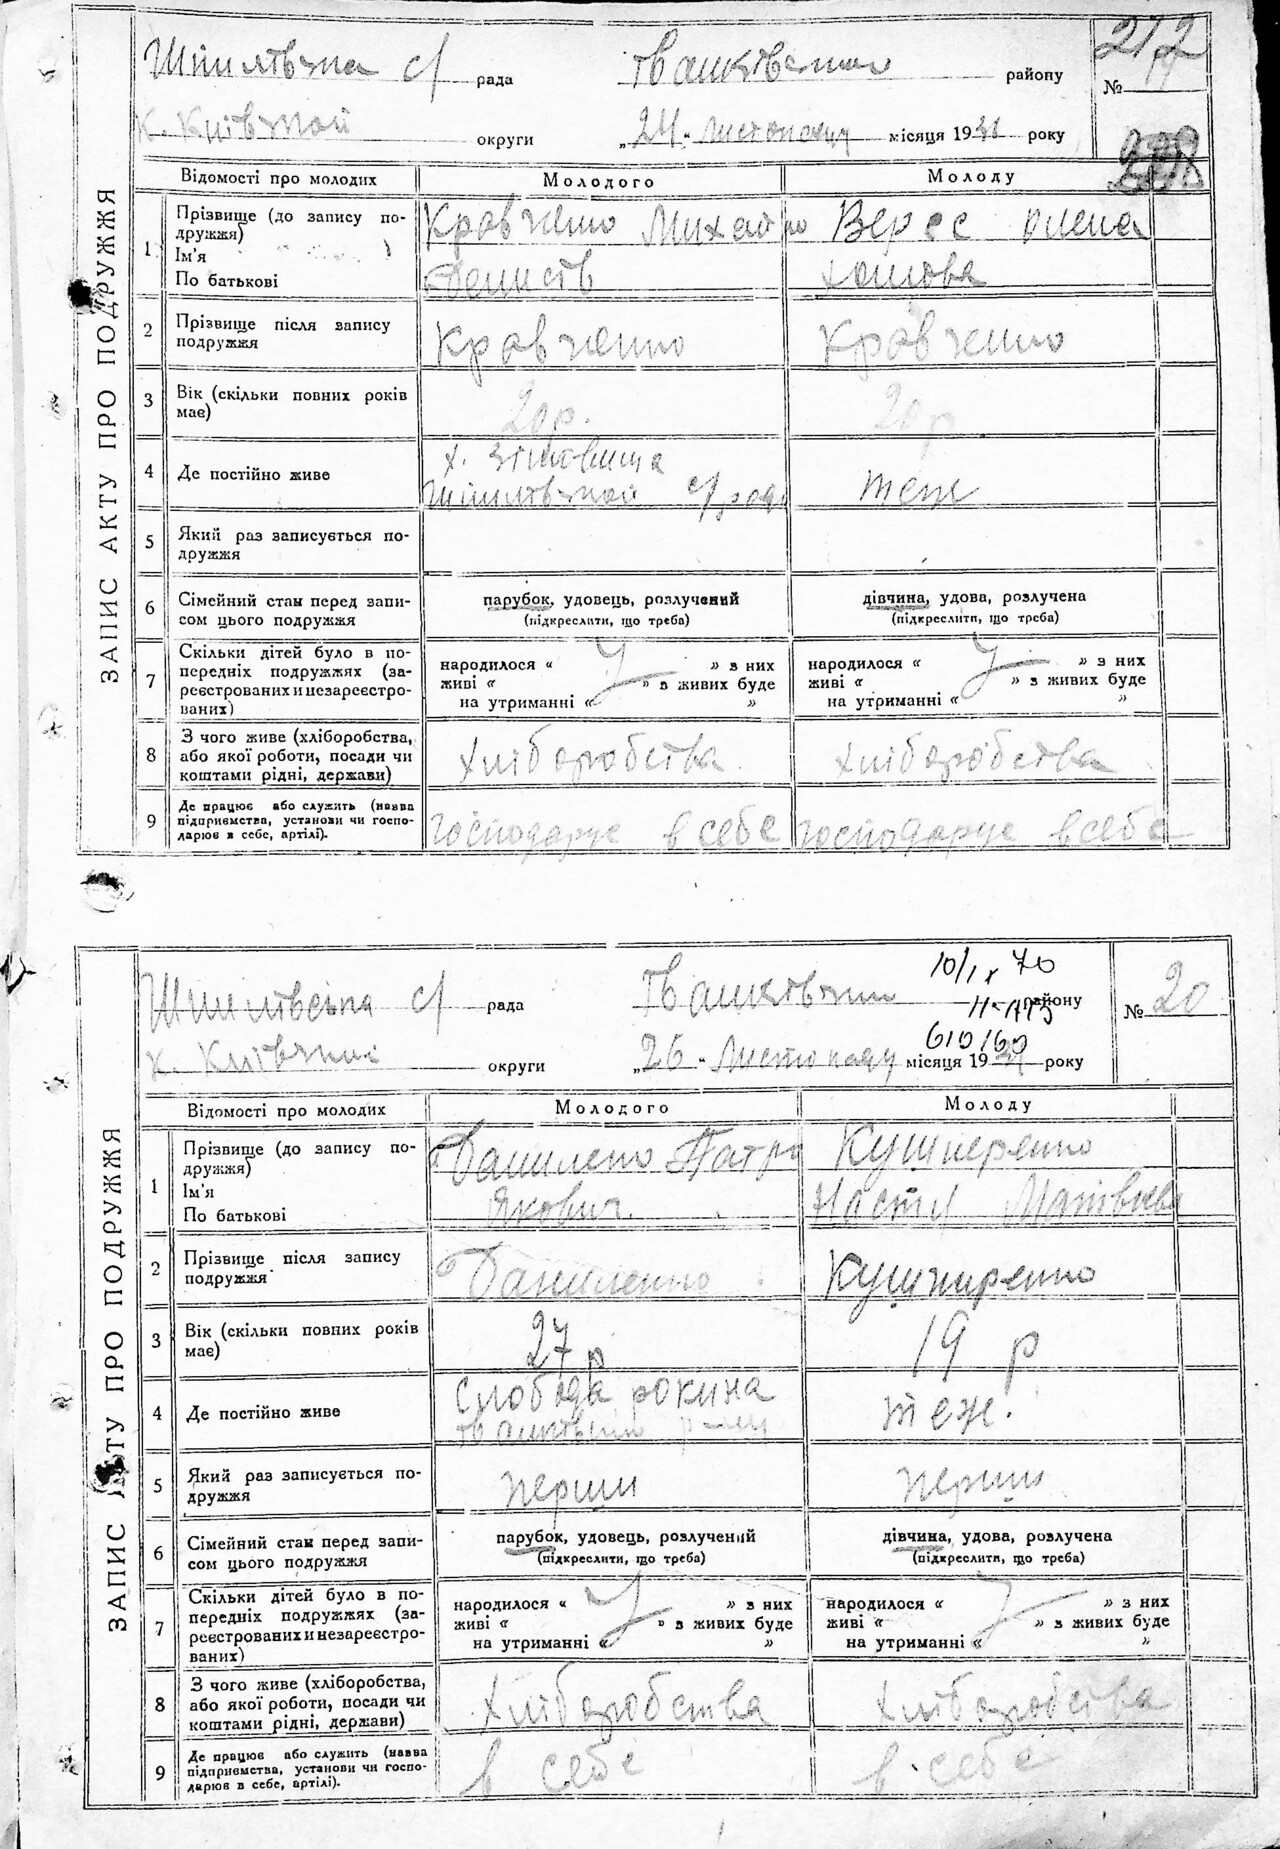 ЗАПИС АКТУ ПРО ПОДРУЖЖЯ
с/ рада району №
округи „24“ Листопаду місяця 1931 року
Відомості про молодих Молодого Молоду
1 Прізвище (до запису по-
дружжя)
Ім'я
По батькові
Кравченко Михайло
Денисів
Верес Олена
Хомівна
2 Прізвище після запису
подружжя
Кравченко Кравченко
3 Вік (скільки повних років
має)
20 р. 20 р
4 Де постійно живе
х.
с/ради
теж
5 Який раз записується по-
дружжя
6 Сімейний стан перед запи-
сом цього подружжя
парубок, удовець, розлучений
(підкреслити, що треба)
дівчина, удова, розлучена
(підкреслити, що треба)
7 Скільки дітей було в по-
передніх подружжях (за-
реєстрованих и незареєстро-
ваних)
народилося « » з них
живі « » з живих буде
на утриманні « »
народилося « » з них
живі « » з живих буде
на утриманні « »
8 З чого живе (хліборобства,
або якої роботи, посади чи
коштами рідні, держави)
Хліборобства Хліборобства
9 Де працює або служить (назва
підприємства, установи чи госпо-
дарює в себе, артілі).
господарує в себе господарує в себе
ЗАПИС АКТУ ПРО ПОДРУЖЖЯ
с/ рада району № 20
10/IX 70
610160
округи „26“ Листопаду місяця 1931 року
Відомості про молодих Молодого Молоду
1 Прізвище (до запису по-
дружжя)
Ім'я
По батькові
Даниленко Петро
Якович.
Кушніренко
Настя Матвіївна
2 Прізвище після запису
подружжя
Даниленко Кушниренко
3 Вік (скільки повних років
має)
27 р 19 р
4 Де постійно живе
Слобода рокина
теж.
5 Який раз записується по-
дружжя
перши перши
6 Сімейний стан перед запи-
сом цього подружжя
парубок, удовець, розлучений
(підкреслити, що треба)
дівчина, удова, розлучена
(підкреслити, що треба)
7 Скільки дітей було в по-
передніх подружжях (за-
реєстрованих и незареєстро-
ваних)
народилося « » з них
живі « » з живих буде
на утриманні « »
народилося « » з них
живі « » з живих буде
на утриманні « »
8 З чого живе (хліборобства,
або якої роботи, посади чи
коштами рідні, держави)
Хліборобства Хліборобства
9 Де працює або служить (назва
підприємства, установи чи госпо-
дарює в себе, артілі).
в себе в себе